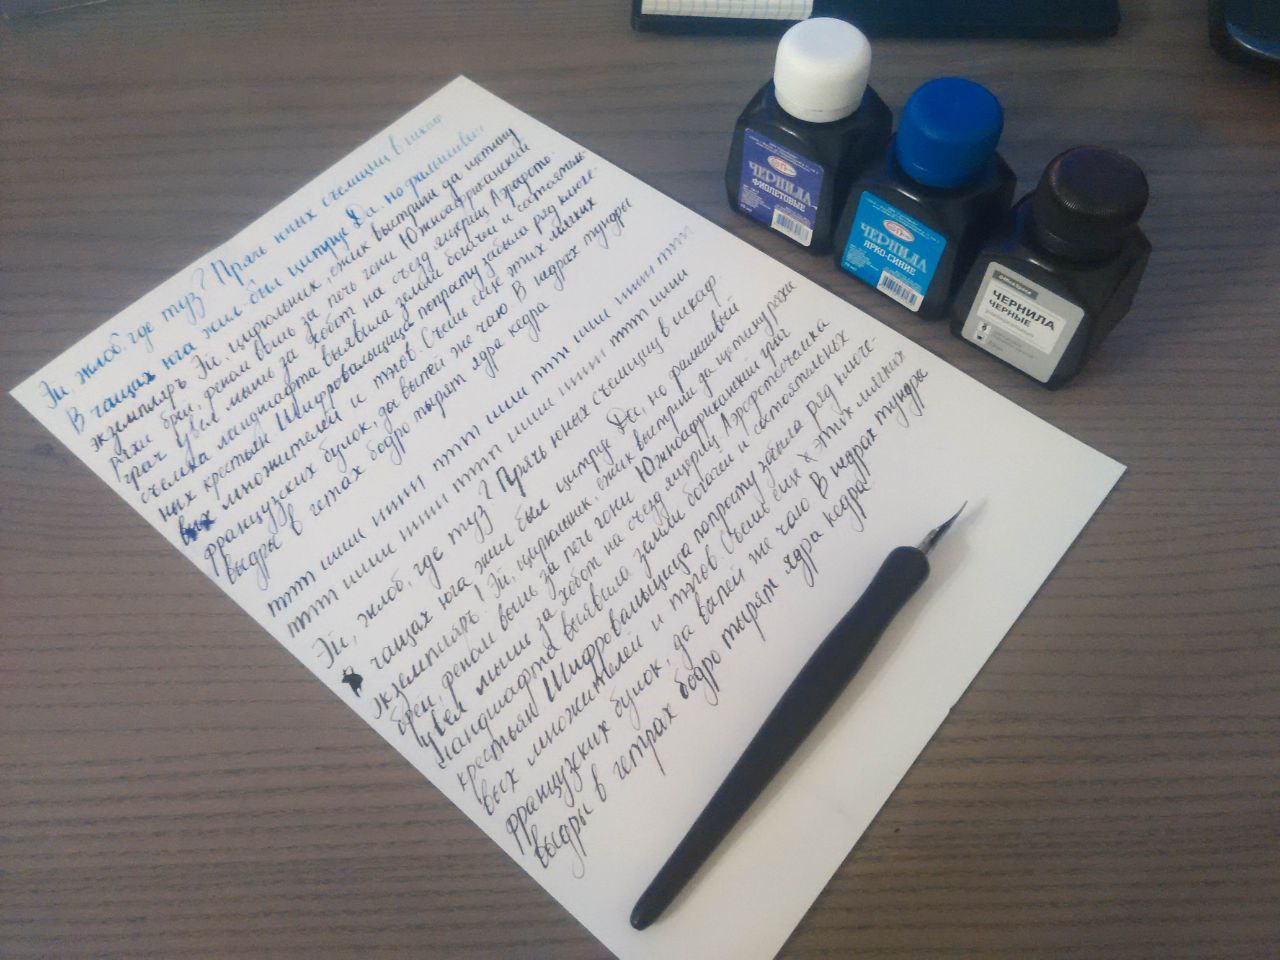 Эй, жлоб, где туз? Прячь юных съёмщиц в шкаф
В чащах юга жил-был цитрус Да, но фальшивый
экземпляръ Эй, цирюльникъ, ёжик выстриги да щетину
ряхи брей, феном вошь за печь гони Южноафриканский
грач увёл мышь за хобот на съезд ящериц Аэрофото-
съёмка ландшафта выявила земли богачей и состоятель-
ных крестьян Шифровальщица попросту забыла ряд ключе-
вых множителей и тэгов. Съешь ещё этих мягких
французских булок, да выпей же чаю В недрах тундры
выдры в гетрах бодро тырят ядра кедра
тттт шшш тттт шшш тттт шшш тттт
тттт шшш тттт шшш тттт шшш
Эй, жлоб, где туз? Прячь юных съёмщиц в шкаф
В чащах юга жил был цитрус Да, но фальшивый
экземпляръ! Эй, цирюльник, ёжик выстриги да щетину ряхи
брей, феном вошь за печь гони Южноафриканский грач
увёл мышь за хобот на съезд ящериц Аэрофотосъёмка
ландшафта выявила земли богачей и состоятельных
крестьян Шифровальщица попросту забыла ряд ключе-
вых множителей и тэгов. Съешь ещё этих мягких
французских булок, да выпей же чаю В недрах тундры
выдры в гетрах бодро тырят ядра кедра
ЧЕРНИЛА
ФИОЛЕТОВЫЕ
ЧЕРНИЛА
ЯРКО-СИНИЕ
ЧЕРНИЛА
ЧЕРНЫЕ